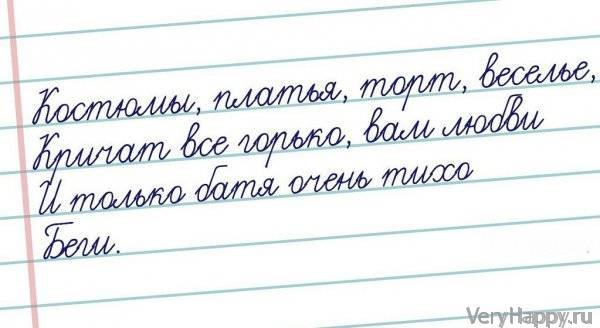 Костюмы, платья, торт, веселье,
Кричат все горько, вам любви
И только батя очень тихо
Беги.
VeryHappy.ru